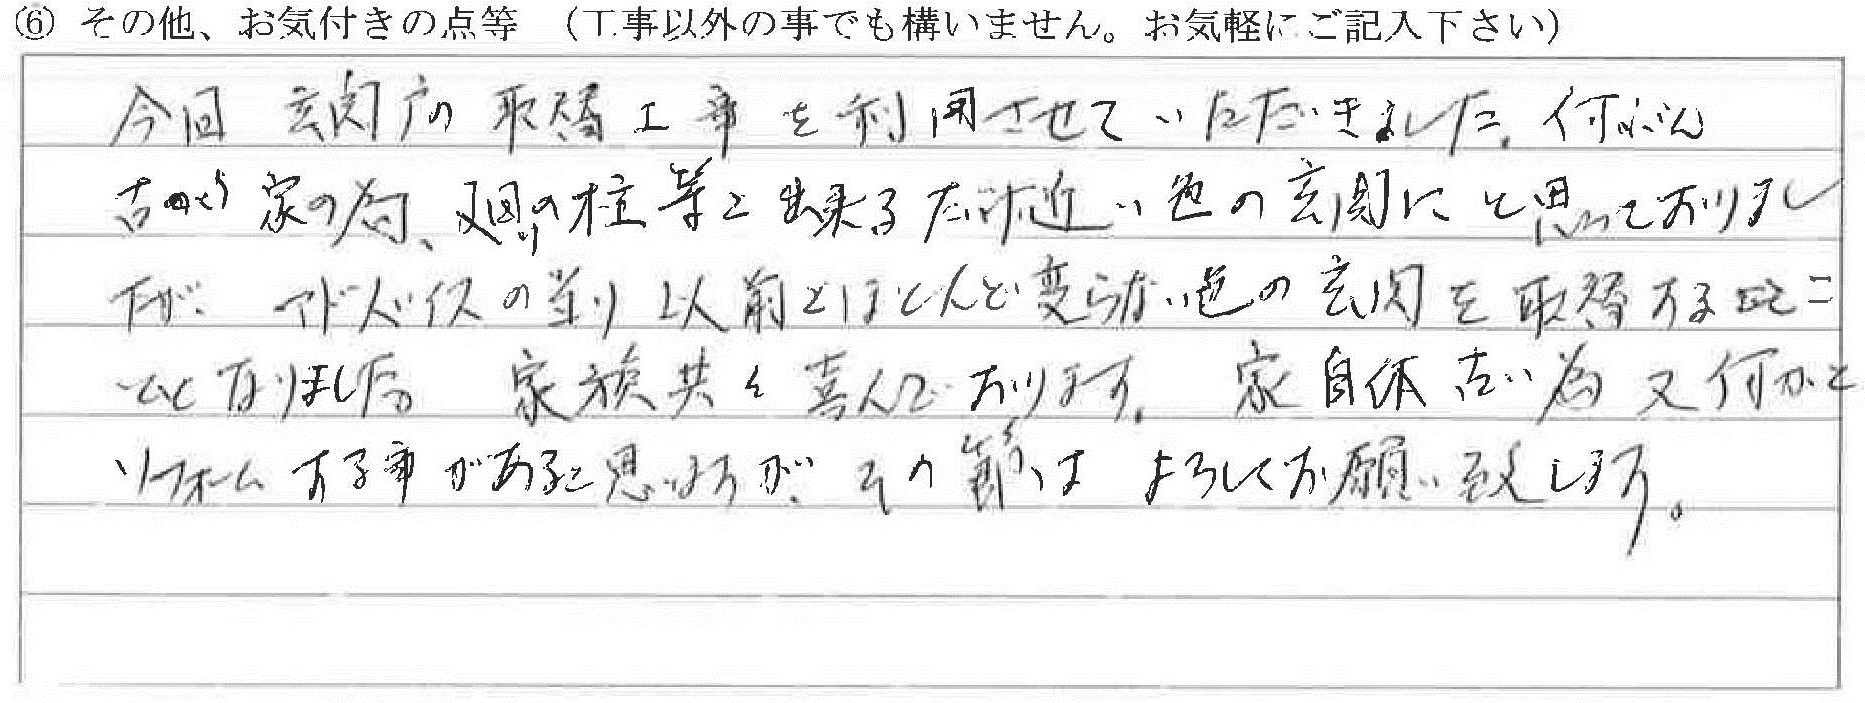 ⑥ その他、お気付きの点等 （工事以外の事でも構いません。お気軽にご記入下さい）
今回 玄関戸の取替工事を利用させていただきました。何ぶん
古い家の為、廻りの柱等と出来るだけ近い色の玄関にと思っておりまし
たが、アドバイスの通り以前とほとんど変らない色の玄関を取替する
となりました。家族共々喜んでおります。家自体古い為又何かと
リフォームする事があると思いますが、その節はよろしくお願い致します。